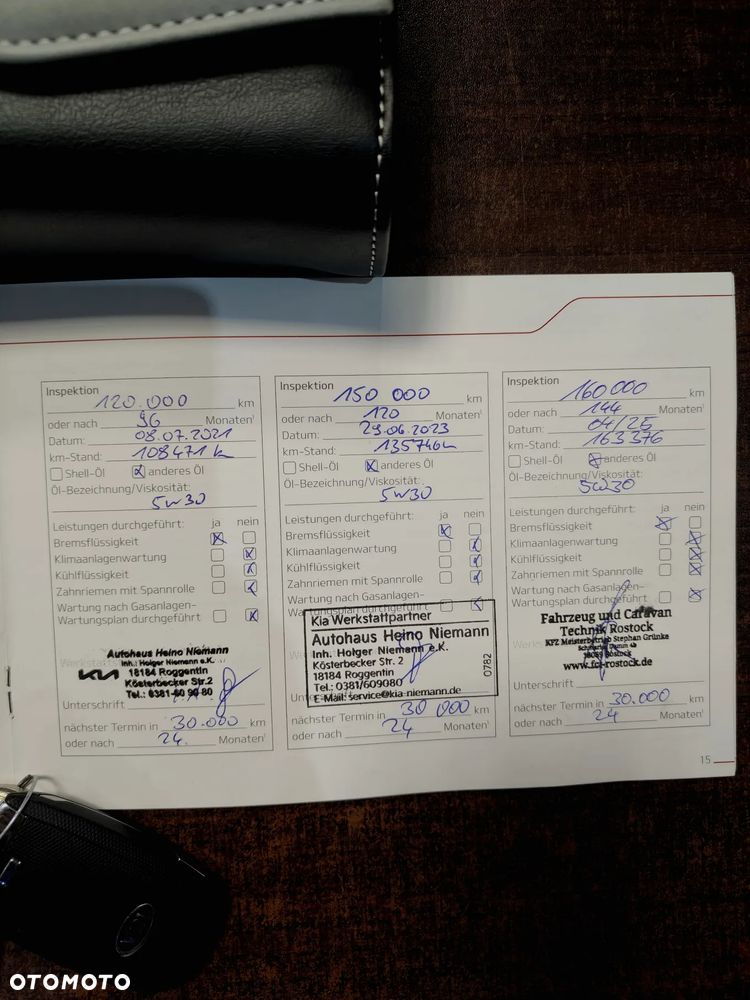 Inspektion
120.000 km
oder nach 96 Monaten¹
Datum: 08.07.2021
km-Stand: 108471 k
Shell-Öl anderes Öl
Öl-Bezeichnung/Viskosität:
5W30
Leistungen durchgeführt: ja nein
Bremsflüssigkeit
Klimaanlagenwartung
Kühlflüssigkeit
Zahnriemen mit Spannrolle
Wartung nach Gasanlagen-
Wartungsplan durchgeführt
Autohaus Heino Niemann
Inh.: Holger Niemann e.K.
KIA 18184 Roggentin
Kösterbecker Str.2
Tel.: 0381-60 90 80
Unterschrift
nächster Termin in 30.000 km
oder nach 24. Monaten¹
Inspektion
150 000 km
oder nach 120 Monaten¹
Datum: 29.06.2023
km-Stand: 135746k
Shell-Öl anderes Öl
Öl-Bezeichnung/Viskosität:
5W30
Leistungen durchgeführt: ja nein
Bremsflüssigkeit
Klimaanlagenwartung
Kühlflüssigkeit
Zahnriemen mit Spannrolle
Wartung nach Gasanlagen-
Wartungsplan durchgeführt
Kia Werkstattpartner
Autohaus Heino Niemann
Inh. Holger Niemann e.K.
Kösterbecker Str. 2
18184 Roggentin
Tel.: 0381/609080
E-Mail: service@kia-niemann.de
0782
nächster Termin in 30 000 km
oder nach 24 Monaten¹
Inspektion
160000 km
oder nach 144 Monaten¹
Datum: 04/25
km-Stand: 163376
Shell-Öl anderes Öl
Öl-Bezeichnung/Viskosität:
5W30
Leistungen durchgeführt: ja nein
Bremsflüssigkeit
Klimaanlagenwartung
Kühlflüssigkeit
Zahnriemen mit Spannrolle
Wartung nach Gasanlagen-
Wartungsplan durchgeführt
Fahrzeug und Caravan
Technik Rostock
KFZ Meisterbetrieb Stephan Grünke
Rostock
www.fct-rostock.de
Unterschrift
nächster Termin in 30.000 km
oder nach 24 Monaten¹
15
OTOMOTO